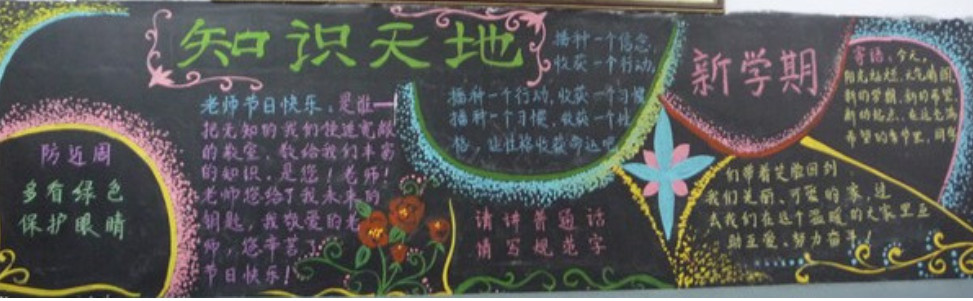 知识天地
防近周
多看绿色
保护眼睛
老师节日快乐，是谁一
把无知的我们领进宽敞
的教室，教给我们丰富
的知识，是您！老师！
老师您给了我未来的
钥匙，我敬爱的老
师，您辛苦了
节日快乐！
播种一个信念，
收获一个行动，
播种一个行动，收获一个习惯
播种一个习惯，收获一个性
格，让性格收获命运吧
请讲普通话
请写规范字
新学期
寄语：今天，
阳光灿烂，天气晴朗
新的学期，新的希望
新的起点，在这充满
希望的季节里，同学
们带着笑脸回到
我们美丽、可爱的家，这
去我们在这个温暖的大家里互
助互爱、努力奋斗！